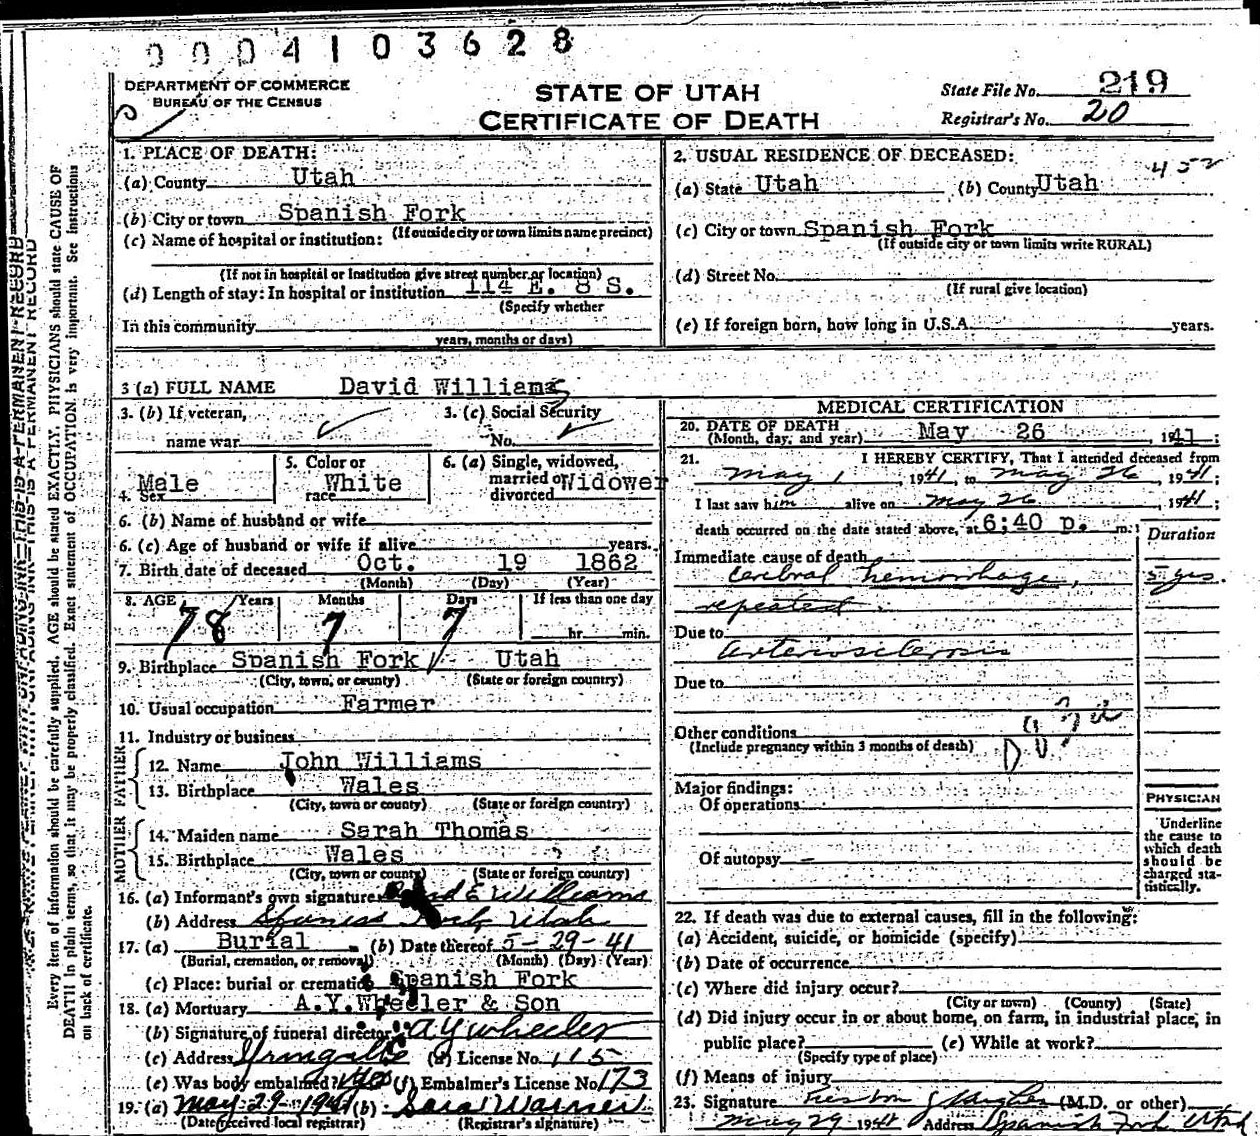 0004103628
DEPARTMENT OF COMMERCE
BUREAU OF THE CENSUS
STATE OF UTAH
CERTIFICATE OF DEATH
State File No. 219
Registrar's No. 20
1. PLACE OF DEATH:
(a) County Utah
(b) City or town Spanish Fork
(If outside city or town limits name precinct)
(c) Name of hospital or institution:
(If not in hospital or Institution give street number or location)
(d) Length of stay: In hospital or institution 114 E. 8 S.
(Specify whether
In this community
years, months or days)
2. USUAL RESIDENCE OF DECEASED:
452
(a) State Utah (b) County Utah
(c) City or town Spanish Fork
(If outside city or town limits write RURAL)
(d) Street No.
(If rural give location)
(e) If foreign born, how long in U.S.A. years.
3 (a) FULL NAME David Williams
3. (b) If veteran, name war
3. (c) Social Security No.
4. Sex Male
5. Color or race White
6. (a) Single, widowed, married or divorced Widower
6. (b) Name of husband or wife
6. (c) Age of husband or wife if alive years.
7. Birth date of deceased Oct. 19 1862
(Month) (Day) (Year)
8. AGE Years Months Days If less than one day
78 7 7 hr. min.
9. Birthplace Spanish Fork Utah
(City, town, or county) (State or foreign country)
10. Usual occupation Farmer
11. Industry or business
FATHER
12. Name John Williams
13. Birthplace Wales
(City, town or county) (State or foreign country)
MOTHER
14. Maiden name Sarah Thomas
15. Birthplace Wales
(City, town or county) (State or foreign country)
16. (a) Informant's own signature E Williams
(b) Address Spanish Fork, Utah
17. (a) Burial (b) Date thereof 5-29-41
(Burial, cremation, or removal) (Month) (Day) (Year)
(c) Place: burial or cremation Spanish Fork
18. (a) Mortuary A.Y. Wheeler & Son
(b) Signature of funeral director A Y Wheeler
(c) Address Springville (d) License No. 115
(e) Was body embalmed? Yes (f) Embalmer's License No. 173
19. (a) May 29-1941 (b) Sara Warner
(Date received local registrar) (Registrar's signature)
MEDICAL CERTIFICATION
20. DATE OF DEATH
(Month, day, and year) May 26, 1941;
21. I HEREBY CERTIFY, That I attended deceased from
May 1, 1941, to May 26, 1941;
I last saw him alive on May 26, 1941;
death occurred on the date stated above, at 6:40 p. m.
Duration
Immediate cause of death
Cerebral hemorrhage, 5 yrs.
repeated.
Due to
Arteriosclerosis
Due to
Other conditions
(Include pregnancy within 3 months of death)
Major findings:
Of operations
Of autopsy –
PHYSICIAN
Underline
the cause to
which death
should be
charged sta-
tistically.
22. If death was due to external causes, fill in the following:
(a) Accident, suicide, or homicide (specify)
(b) Date of occurrence
(c) Where did injury occur?
(City or town) (County) (State)
(d) Did injury occur in or about home, on farm, in industrial place, in
public place? (e) While at work?
(Specify type of place)
(f) Means of injury
23. Signature (M.D. or other)
May 29 1941 Address Spanish Fork Utah
THIS IS A PERMANENT RECORD
Every item of information should be carefully supplied. AGE should be stated EXACTLY. PHYSICIANS should state CAUSE OF
DEATH in plain terms, so that it may be properly classified. Exact statement of OCCUPATION is very important. See instructions
on back of certificate.